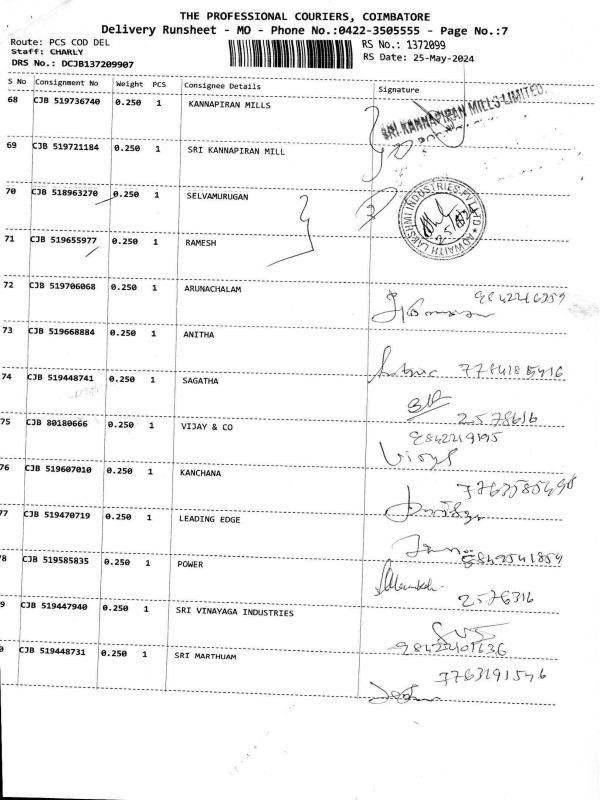 THE PROFESSIONAL COURIERS, COIMBATORE
Delivery Runsheet - MO - Phone No.:0422-3505555 - Page No.:7
Route: PCS COD DEL
Staff: CHARLY
DRS No.: DCJB137209907
RS No.: 1372099
RS Date: 25-May-2024
S No Consignment No Weight PCS Consignee Details Signature
68 CJB 519736740 0.250 1 KANNAPIRAN MILLS
SRI KANNAPIRAN MILLS LIMITED.
69 CJB 519721184 0.250 1 SRI KANNAPIRAN MILL
70 CJB 518963270 0.250 1 SELVAMURUGAN
ADWAITH LAKSHMI INDUSTRIES PVT LTD
71 CJB 519655977 0.250 1 RAMESH
72 CJB 519706068 0.250 1 ARUNACHALAM
73 CJB 519668884 0.250 1 ANITHA
74 CJB 519448741 0.250 1 SAGATHA
2578616
75 CJB 80180666 0.250 1 VIJAY & CO
76 CJB 519607010 0.250 1 KANCHANA
77 CJB 519470719 0.250 1 LEADING EDGE
8 CJB 519585835 0.250 1 POWER
2576316
9 CJB 519447940 0.250 1 SRI VINAYAGA INDUSTRIES
0 CJB 519448731 0.250 1 SRI MARTHUAM
7763191546